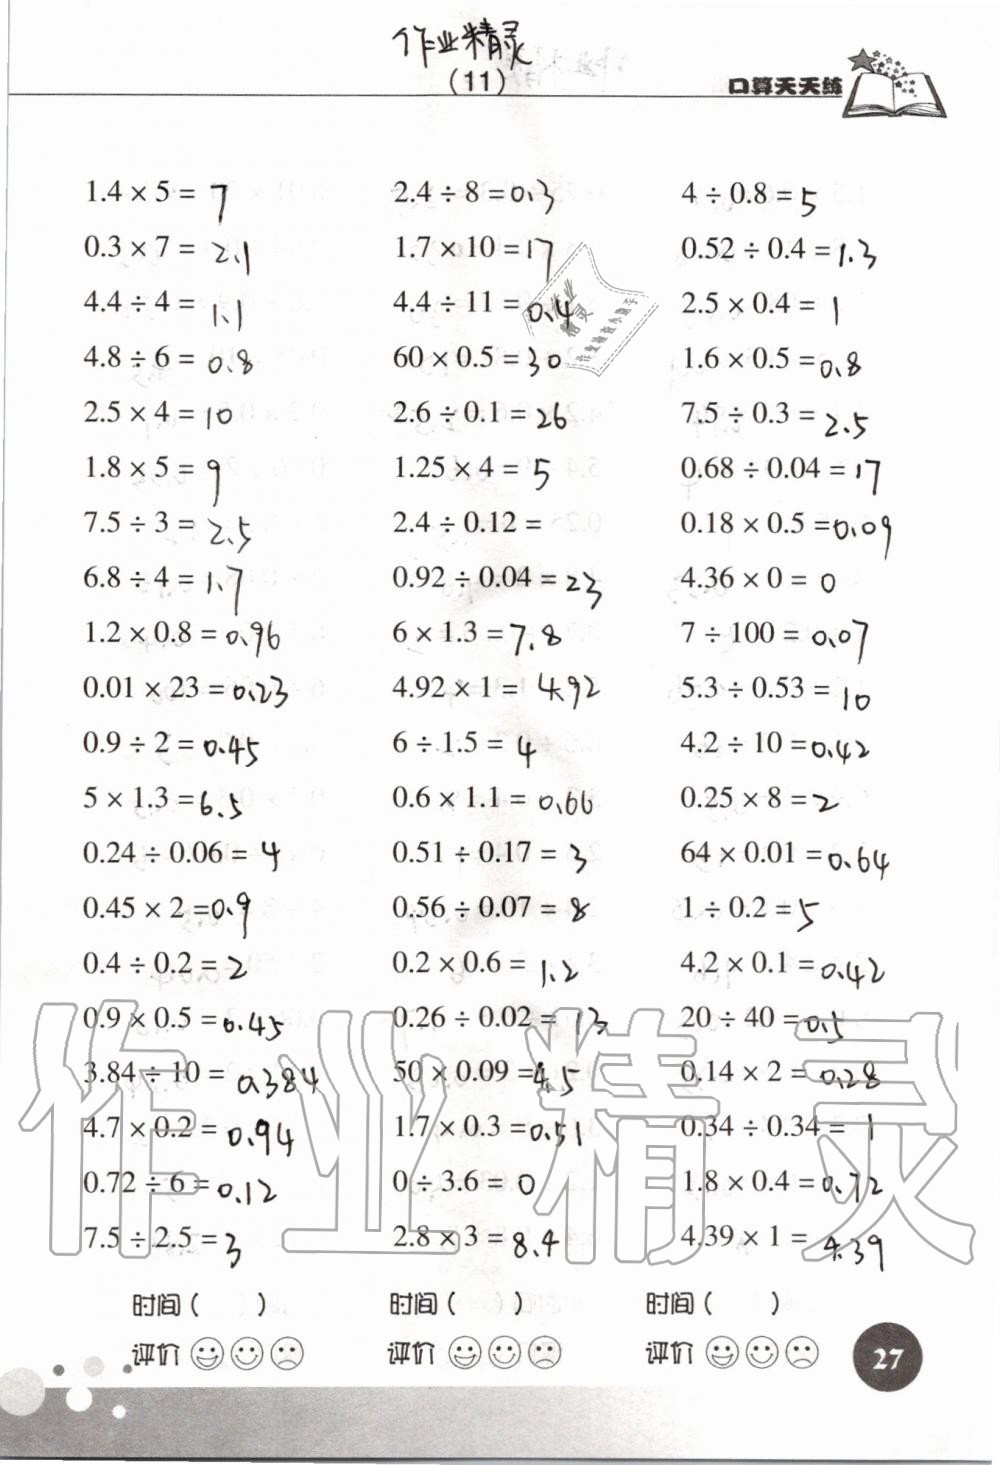 作业精灵
(11)
口算天天练
1.4 × 5 = 7
2.4 ÷ 8 = 0.3
4 ÷ 0.8 = 5
0.3 × 7 = 2.1
1.7 × 10 = 17
0.52 ÷ 0.4 = 1.3
4.4 ÷ 4 = 1.1
4.4 ÷ 11 = 0.4
2.5 × 0.4 = 1
4.8 ÷ 6 = 0.8
60 × 0.5 = 30
1.6 × 0.5 = 0.8
2.5 × 4 = 10
2.6 ÷ 0.1 = 26
7.5 ÷ 0.3 = 2.5
1.8 × 5 = 9
1.25 × 4 = 5
0.68 ÷ 0.04 = 17
7.5 ÷ 3 = 2.5
2.4 ÷ 0.12 =
0.18 × 0.5 = 0.09
6.8 ÷ 4 = 1.7
0.92 ÷ 0.04 = 23
4.36 × 0 = 0
1.2 × 0.8 = 0.96
6 × 1.3 = 7.8
7 ÷ 100 = 0.07
0.01 × 23 = 0.23
4.92 × 1 = 4.92
5.3 ÷ 0.53 = 10
0.9 ÷ 2 = 0.45
6 ÷ 1.5 = 4
4.2 ÷ 10 = 0.42
5 × 1.3 = 6.5
0.6 × 1.1 = 0.66
0.25 × 8 = 2
0.24 ÷ 0.06 = 4
0.51 ÷ 0.17 = 3
64 × 0.01 = 0.64
0.45 × 2 = 0.9
0.56 ÷ 0.07 = 8
1 ÷ 0.2 = 5
0.4 ÷ 0.2 = 2
0.2 × 0.6 = 1.2
4.2 × 0.1 = 0.42
0.9 × 0.5 = 0.45
0.26 ÷ 0.02 = 13
20 ÷ 40 = 0.5
3.84 ÷ 10 = 0.384
50 × 0.09 = 4.5
0.14 × 2 = 0.28
4.7 × 0.2 = 0.94
1.7 × 0.3 = 0.51
0.34 ÷ 0.34 = 1
0.72 ÷ 6 = 0.12
0 ÷ 3.6 = 0
1.8 × 0.4 = 0.72
7.5 ÷ 2.5 = 3
2.8 × 3 = 8.4
4.39 × 1 = 4.39
作业精灵
时间（ ）
时间（ ）
时间（ ）
评价
评价
评价
27